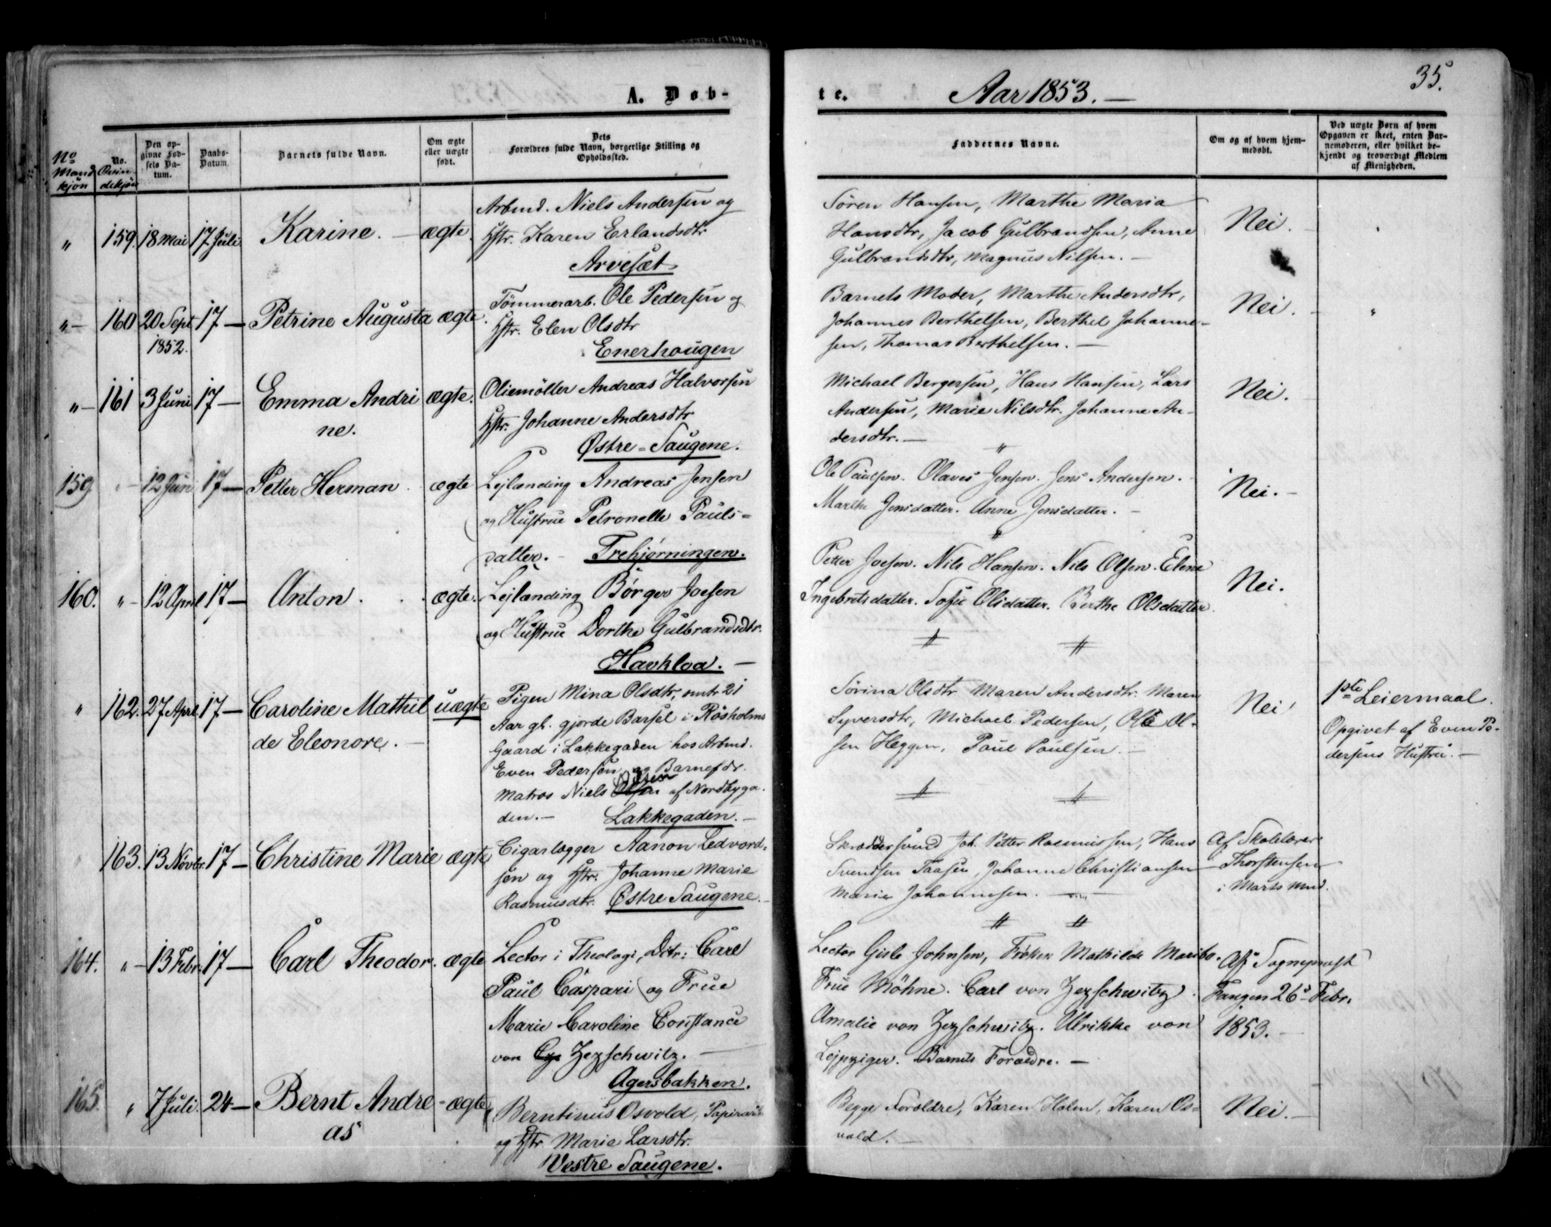 A. Døb-
te.
Aar 1853. —
35.
No Mand kjön
No. Qvin dekjön
Den op-
givne Fød-
sels Da-
tum.
Daabs-
Datum.
Barnets fulde Navn.
Om ægte
eller uægte
født.
Dets
Forældres fulde Navn, borgerlige Stilling og
Opholdssted.
Faddernes Navne.
Om og af hvem hjem-
medøbt.
Ved uægte Børn af hvem
Opgaven er skeet, enten Bar-
nemoderen, eller hvilket be-
kjendt og troværdigt Medlem
af Menigheden.
" 159. 18 Mai 17 Juli Karine. — ægte.
Arbmd. Niels Andersen og
Hstr. Karen Erlandsdtr
Arveset
Søren Hansen, Marthe Maria
Hansdtr, Jacob Gulbrandsen, Anne
Gulbrandsdtr, Magnus Nilsen. —
Nei.
"— 160 20 Sept 1852. 17 — Petrine Augusta ægte.
Tømmerarb. Ole Pedersen og
Hstr. Elen Olsdtr
Enerhougen
Barnets Moder, Marthe Andersdtr,
Johannes Berthelsen, Berthel Johanne-
sen, Thomas Berthelsen. —
Nei.
"— 161 3 Juni 17 — Emma Andri
ne. ægte.
Oliemøller Andreas Halvorsen
Hstr. Johanne Andersdtr
Østre-Saugene.
Michael Bergersen, Hans Hansen, Lars
Andersen, Marie Nilsdtr. Johanne An-
dersdtr. —
Nei.
159 " 12 Jun 17 — Petter Herman. ægte
Lejlænding Andreas Jensen
og Hustrue Petronelle Pauls-
datter. — Trehjørningen.
Ole Paulsen. Olaves Jensen. Jens Andersen. -
Marthe Jensdatter. Anne Jensdatter. —
Nei. —
160. " 12 April 17 — Anton. ægte.
Lejlænding Børger Joesen
og Hustrue Dorthe Gulbrandsdtr.
Havkloa. —
Petter Joesen. Nils Hansen. Nils Olsen. Elene
Ingebretsdatter. Sofie Olsdatter. Berthe Olsdatter.
Nei.
" 162. 27 April 17 — Caroline Mathil
de Eleonore. — uægte
Pigen Mina Olsdtr. nntr 21
Aar gl. gjorde Barsel i Røsholms
Gaard i Lakkegaden hos Arbmd.
Even Pedersen og Barnefdr.
Matros Niels Nilsen af Nordbyga-
den. — Lakkegaden. —
Sørina Olsdtr. Maren Andersdtr. Maren
Syversdtr, Michael Pedersen, Ole Ol-
sen Heggen, Paul Paulsen —
Nei!
1ste Leiermaal
Opgivet af Even Pe-
dersens Hustru. —
163. 13 Novbr. 17 — Christine Marie ægte
Cigarlægger Aanon Ledvord-
sen og Hstr. Johanne Marie
Rasmusdtr. Østre Saugene. —
Skræddersvend Joh. Petter Rasmussen, Hans
Svendsen Taasen, Johanne Christiansen
Marie Johannesen. —
Af Skolelærer
Thorstensen
i Marts Mnd.
164. " 13 Febr. 17 — Carl Theodor. ægte
Lector i Theologi, Dctr: Carl
Paul Caspari og Frue
Marie Caroline Constance
von Zezschwitz. —
Agersbakken.
Lector Gisle Johnsen, Frøken Mathilde Maribo.
Frue Møhne. Carl von Zezschwitz.
Amalie von Zezschwitz. Ulrikke von
Leipziger. Barnets Forældre. —
Af Sognepræst
Fangen 26 Febr.
1853. —
165. " 7 Juli. 24 — Bernt Andre-
as ægte
Berntinus Osvold, Papirarb
og Hstr Marie Larsdtr.
Vestre Saugene.
Begge Foræļdre, Karen Holm, Karen Os-
vold. —
Nei. —